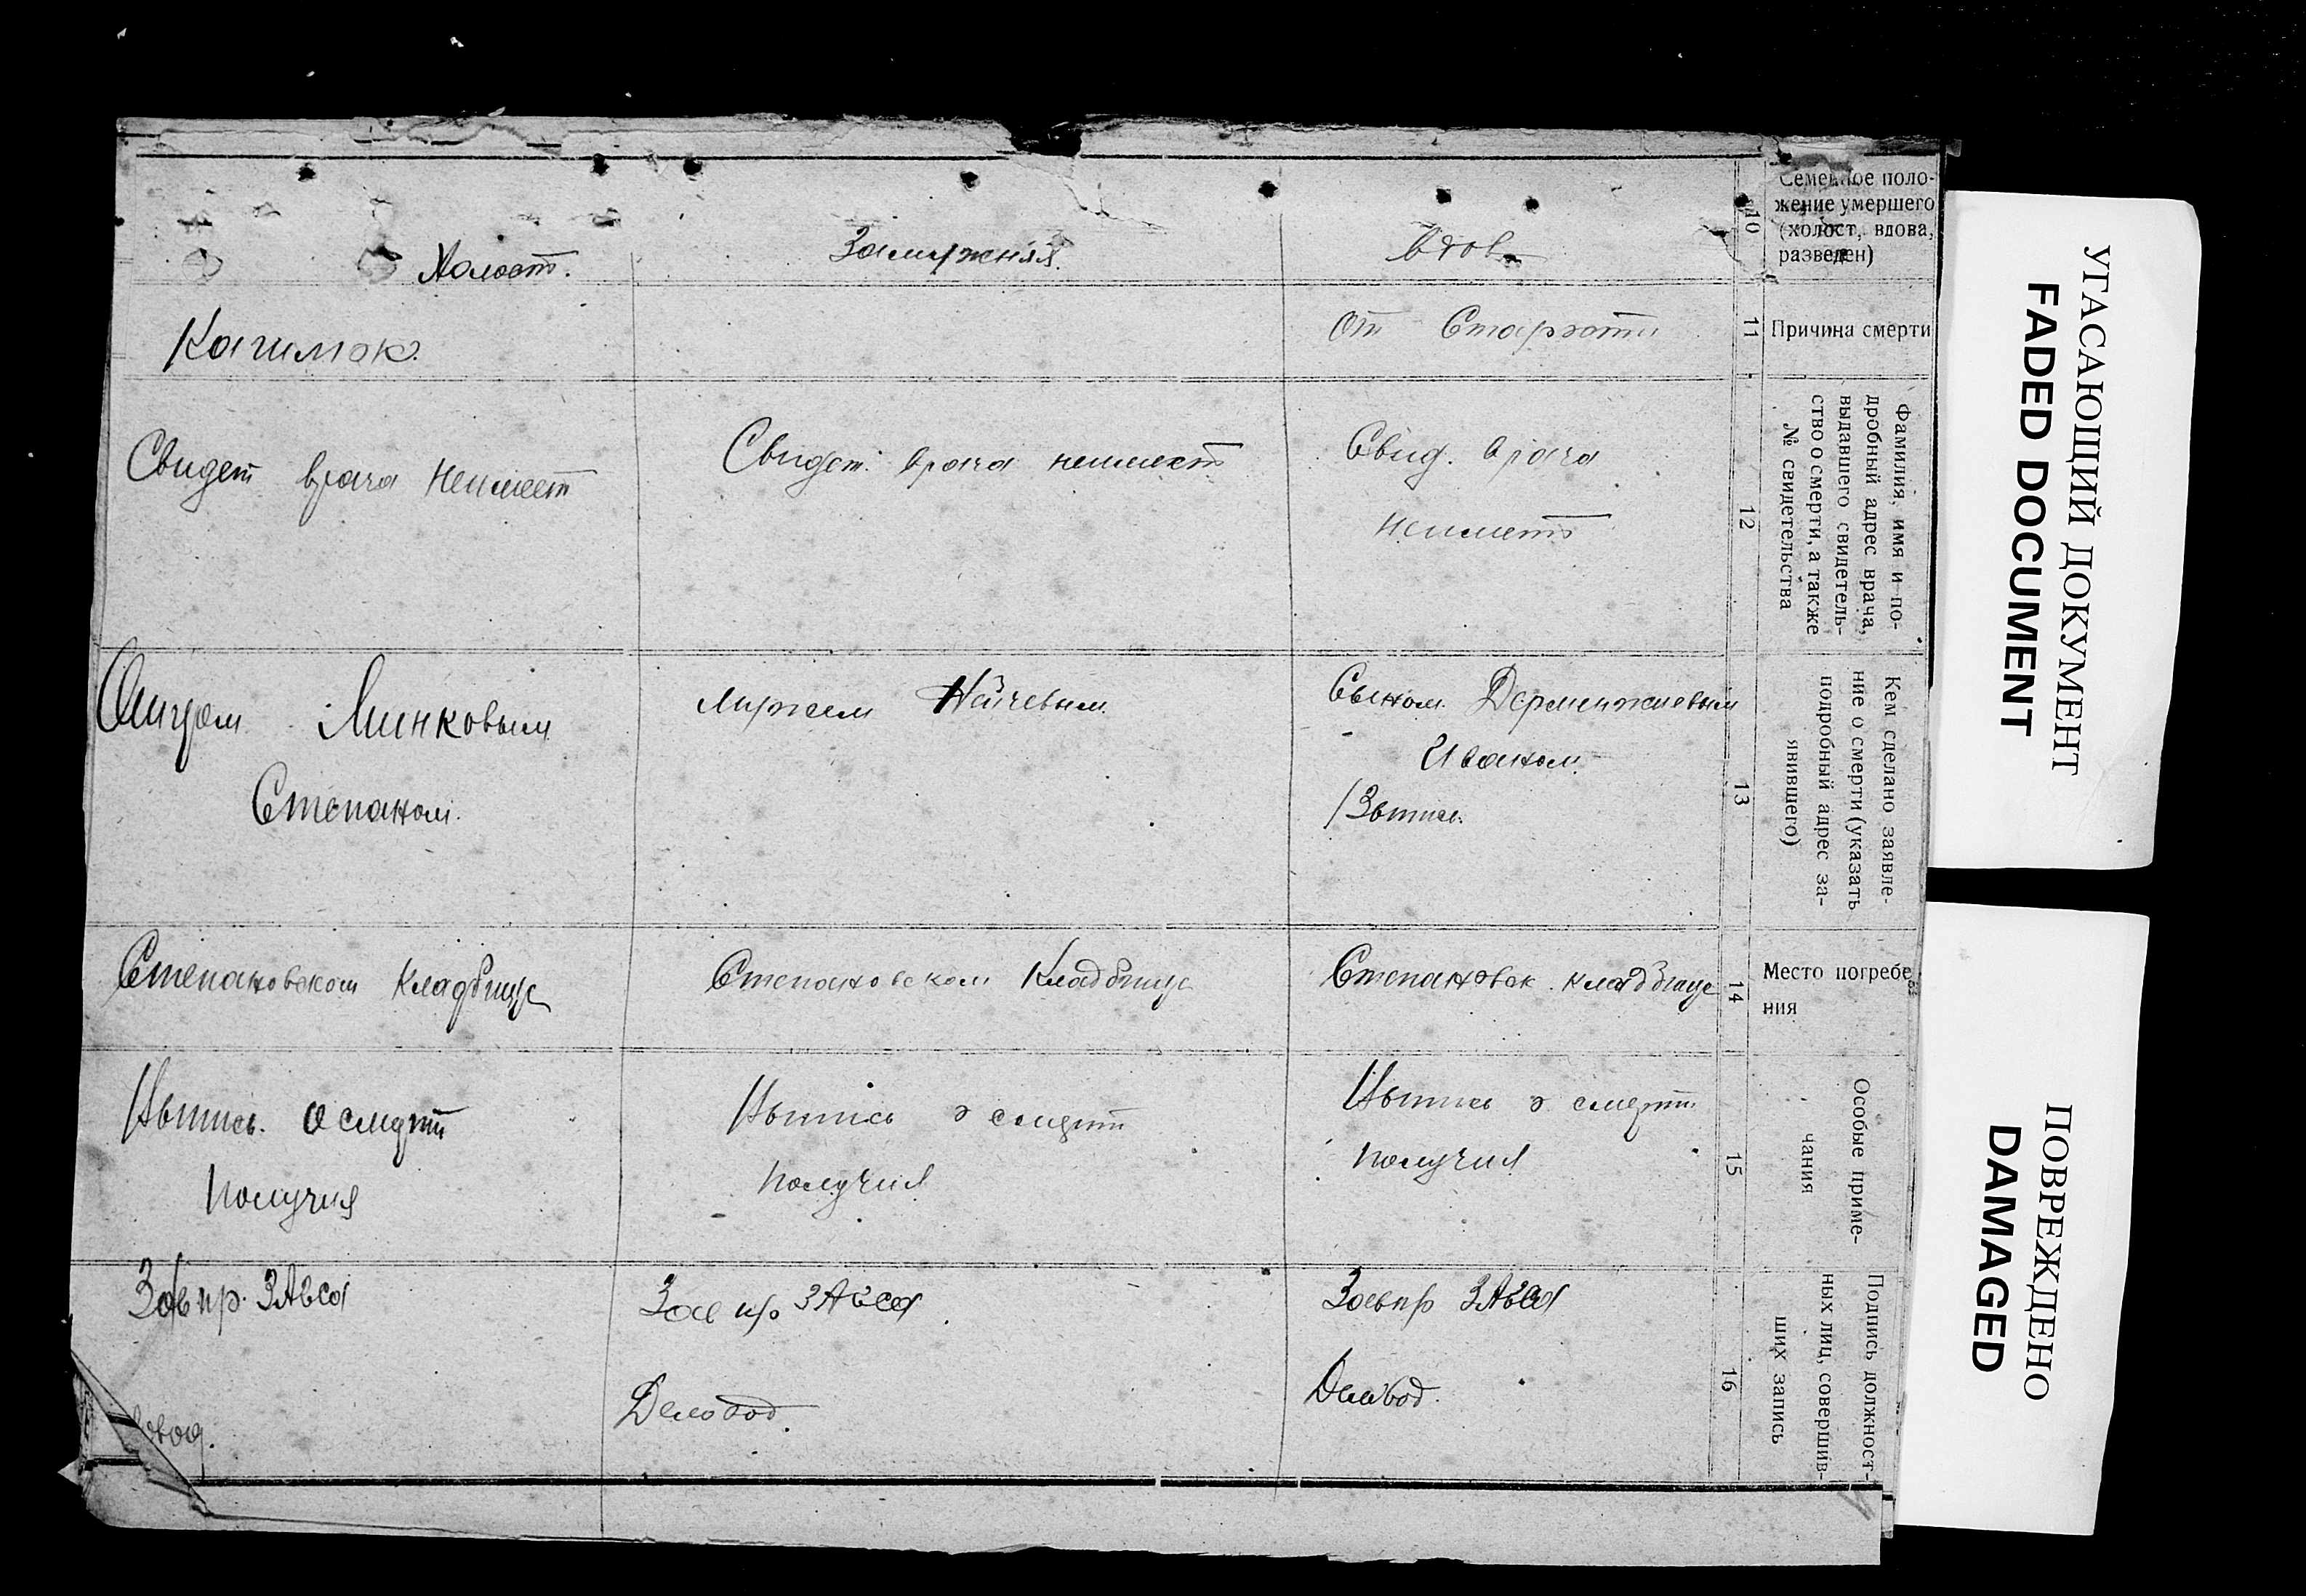 Холост.
Замужняя.
вдов
10
Семейное поло-
жение умершего
(холост, вдова,
разведен)
Кашмок.
от Старости
11
Причина смерти
Свидет врача Неимеет
Свидет. врача неимеет
Свид. врача
неимеет
12
Фамилия, имя и по-
дробный адрес врача,
выдавшего свидетель-
ство о смерти, а также
№ свидетельства
Отцом Минковым
Степаном.
мужем Найчевым.
Сыном Дерменжиевым
Иваном.
13
Кем сделано заявле-
ние о смерти (указать
подробный адрес за-
явившего)
Степановском Кладбище
Степановском Кладбище
Степановск. кладбище
14
Место погребе-
ния
Выпись о смерти
получил
Выпись о смерти
получил
Выпись о смерти
получил
15
Особые приме-
чания
Завпр. ЗАГСа
овод.
Зав пр ЗАГСа
Деловод.
Завпр ЗАГСа
Делвод.
16
Подпись должност-
ных лиц, совершив-
ших запись
УГАСАЮЩИЙ ДОКУМЕНТ
FADED DOCUMENT
ПОВРЕЖДЕНО
DAMAGED